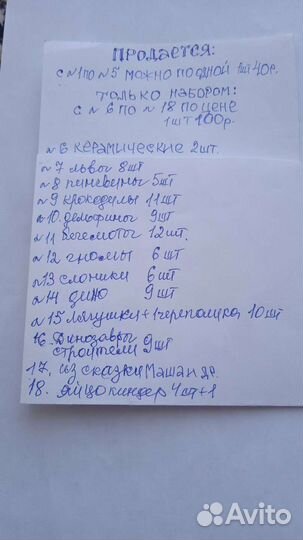 ПРОДАЕТСЯ:
с №1 по №5 можно по одной 1шт 40р.
только набором:
с №6 по №18 по цене
1шт 100р.
№6 керамические 2шт.
№7 львы 8шт
№8 пингвины 5шт
№9 крокодилы 11шт
№10. дельфины 9шт
№11 бегемоты 12шт.
№12 гномы 6шт
№13 слоники 6шт
№14 дино 9шт
№15 лягушки+1черепашка, 10шт
16. Динозавры
строители 9шт
17. из сказки Маша и др.
18. яйцо киндер 4шт+1
Avito